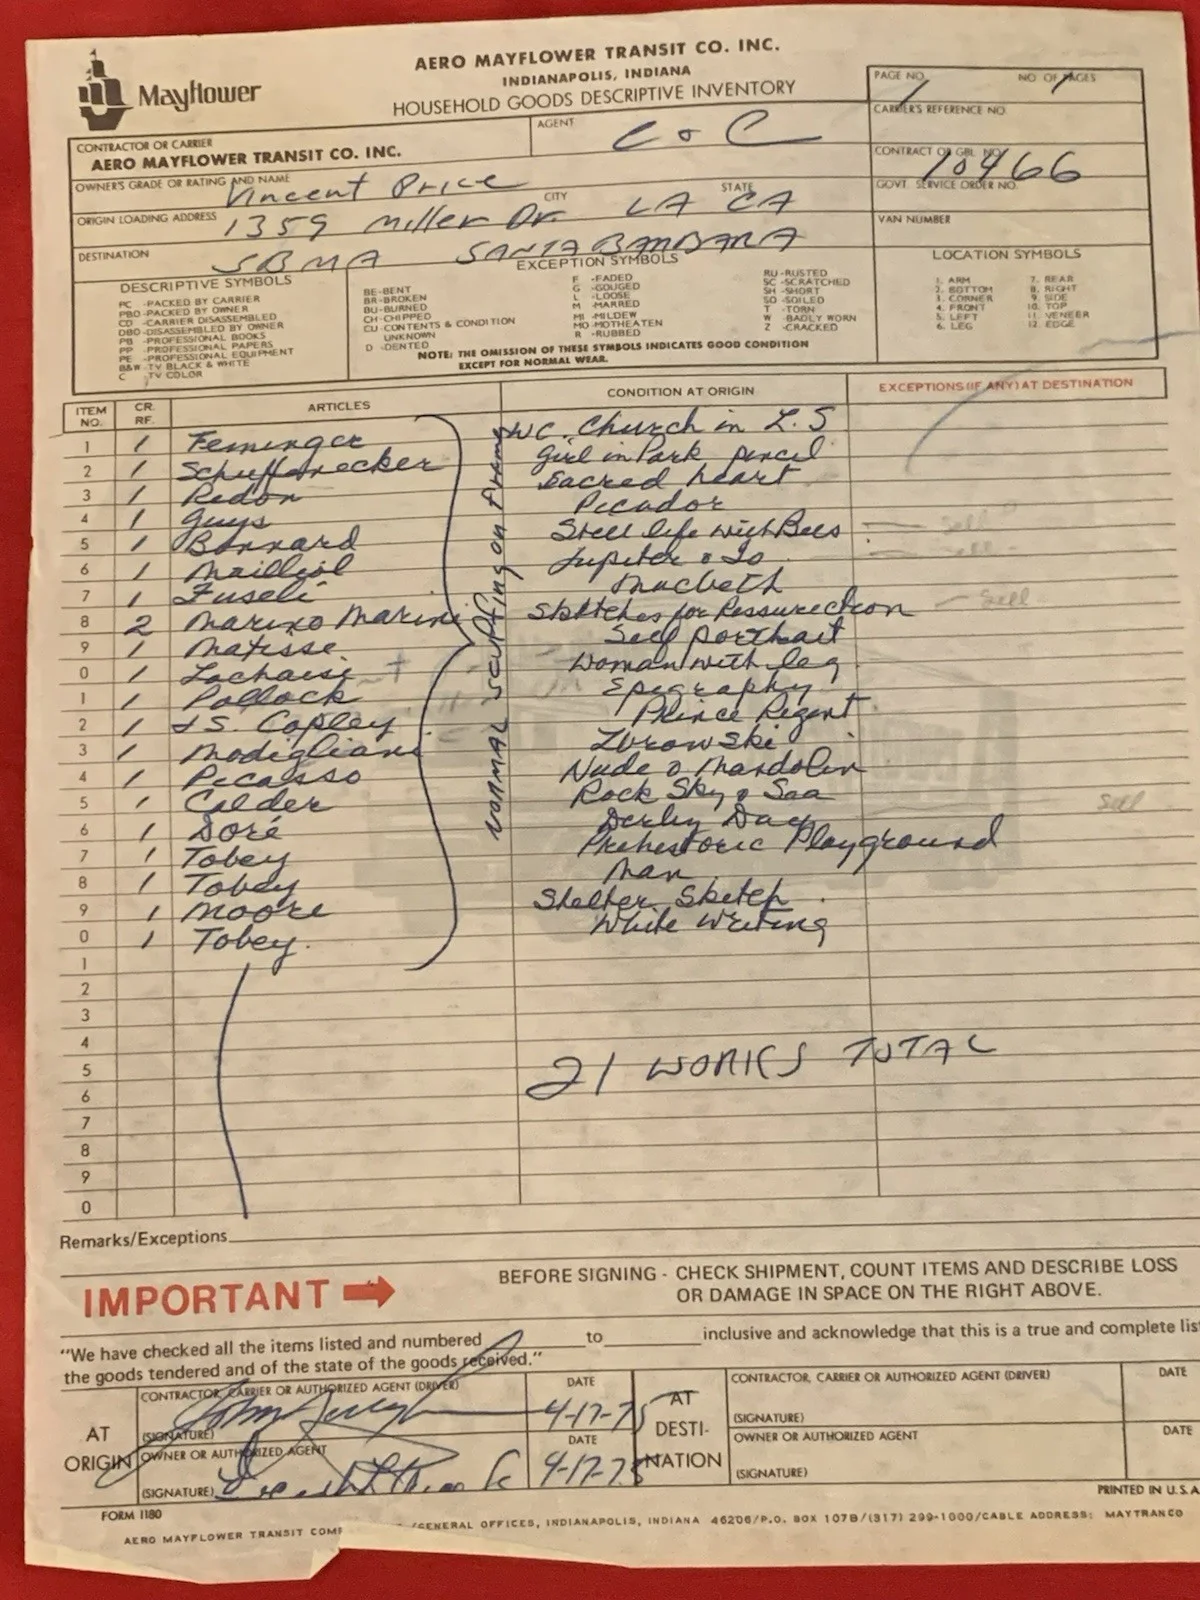 Mayflower
AERO MAYFLOWER TRANSIT CO. INC.
INDIANAPOLIS, INDIANA
HOUSEHOLD GOODS DESCRIPTIVE INVENTORY
PAGE NO. 1 NO. OF PAGES 1
CARRIER'S REFERENCE NO.
CONTRACTOR OR CARRIER
AERO MAYFLOWER TRANSIT CO. INC.
AGENT C & C
CONTRACT OR GBL NO. 70466
OWNER'S GRADE OR RATING AND NAME Vincent Price
GOVT. SERVICE ORDER NO.
ORIGIN LOADING ADDRESS 1359 Miller Dr CITY LA STATE CA
VAN NUMBER
DESTINATION SBMA SANTA BARBARA
DESCRIPTIVE SYMBOLS
PC -PACKED BY CARRIER
PBO -PACKED BY OWNER
CD -CARRIER DISASSEMBLED
DBO -DISASSEMBLED BY OWNER
PB -PROFESSIONAL BOOKS
PP -PROFESSIONAL PAPERS
PE -PROFESSIONAL EQUIPMENT
B&W -TV BLACK & WHITE
C -TV COLOR
EXCEPTION SYMBOLS
BE-BENT
BR-BROKEN
BU-BURNED
CH-CHIPPED
CU-CONTENTS & CONDITION UNKNOWN
D -DENTED
F -FADED
G -GOUGED
L -LOOSE
M -MARRED
MI -MILDEW
MO-MOTHEATEN
R -RUBBED
RU-RUSTED
SC-SCRATCHED
SH-SHORT
SO-SOILED
T -TORN
W -BADLY WORN
Z -CRACKED
NOTE: THE OMISSION OF THESE SYMBOLS INDICATES GOOD CONDITION
EXCEPT FOR NORMAL WEAR.
LOCATION SYMBOLS
1. ARM 7. REAR
2. BOTTOM 8. RIGHT
3. CORNER 9. SIDE
4. FRONT 10. TOP
5. LEFT 11. VENEER
6. LEG 12. EDGE
ITEM NO. CR. RF. ARTICLES CONDITION AT ORIGIN EXCEPTIONS (IF ANY) AT DESTINATION
1 1 Feininger WC. Church in L.S
2 1 Schuffenecker Girl in Park pencil
3 1 Redon Sacred heart
4 1 Guys Picador
5 1 Bonnard Still life with Bees sell
6 1 Mailliol Jupiter & Io sell
7 1 Fuseli Macbeth
8 2 Marino Marini Sketches for Ressurection sell
9 1 Matisse Self portrait
0 1 Lachaise Woman with leg
1 1 Pollock Epigraphy
2 1 J S. Copley Prince Regent
3 1 Modigliani Zborowski
4 1 Picasso Nude & Mandolin
5 1 Calder Rock Sky & Sea sell
6 1 Doré Derby Day
7 1 Tobey Prehistoric Playground
8 1 Tobey Man
9 1 Moore Shelter Sketch
0 1 Tobey. White Writing
NORMAL SCUFFING ON FRAME
1
2
3
4
5 21 WORKS TOTAL
6
7
8
9
0
Remarks/Exceptions
IMPORTANT
BEFORE SIGNING - CHECK SHIPMENT, COUNT ITEMS AND DESCRIBE LOSS
OR DAMAGE IN SPACE ON THE RIGHT ABOVE.
"We have checked all the items listed and numbered to inclusive and acknowledge that this is a true and complete list
the goods tendered and of the state of the goods received."
AT ORIGIN
CONTRACTOR, CARRIER OR AUTHORIZED AGENT (DRIVER)
(SIGNATURE)
DATE
4-17-75
OWNER OR AUTHORIZED AGENT
(SIGNATURE)
DATE
4-17-75
AT DESTI-NATION
CONTRACTOR, CARRIER OR AUTHORIZED AGENT (DRIVER)
(SIGNATURE)
DATE
OWNER OR AUTHORIZED AGENT
(SIGNATURE)
DATE
FORM 1180
PRINTED IN U.S.A
AERO MAYFLOWER TRANSIT COMP /GENERAL OFFICES, INDIANAPOLIS, INDIANA 46206/P.O. BOX 107B/(317) 299-1000/CABLE ADDRESS: MAYTRANCO